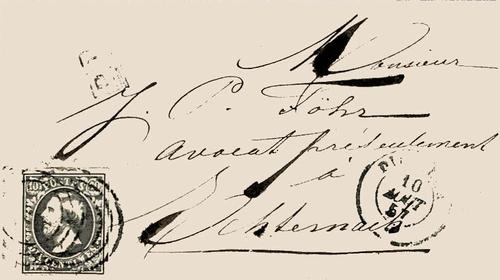 Monsieur
J. P. Föhr
avocat présentement
à
Echternach
10
AOUT